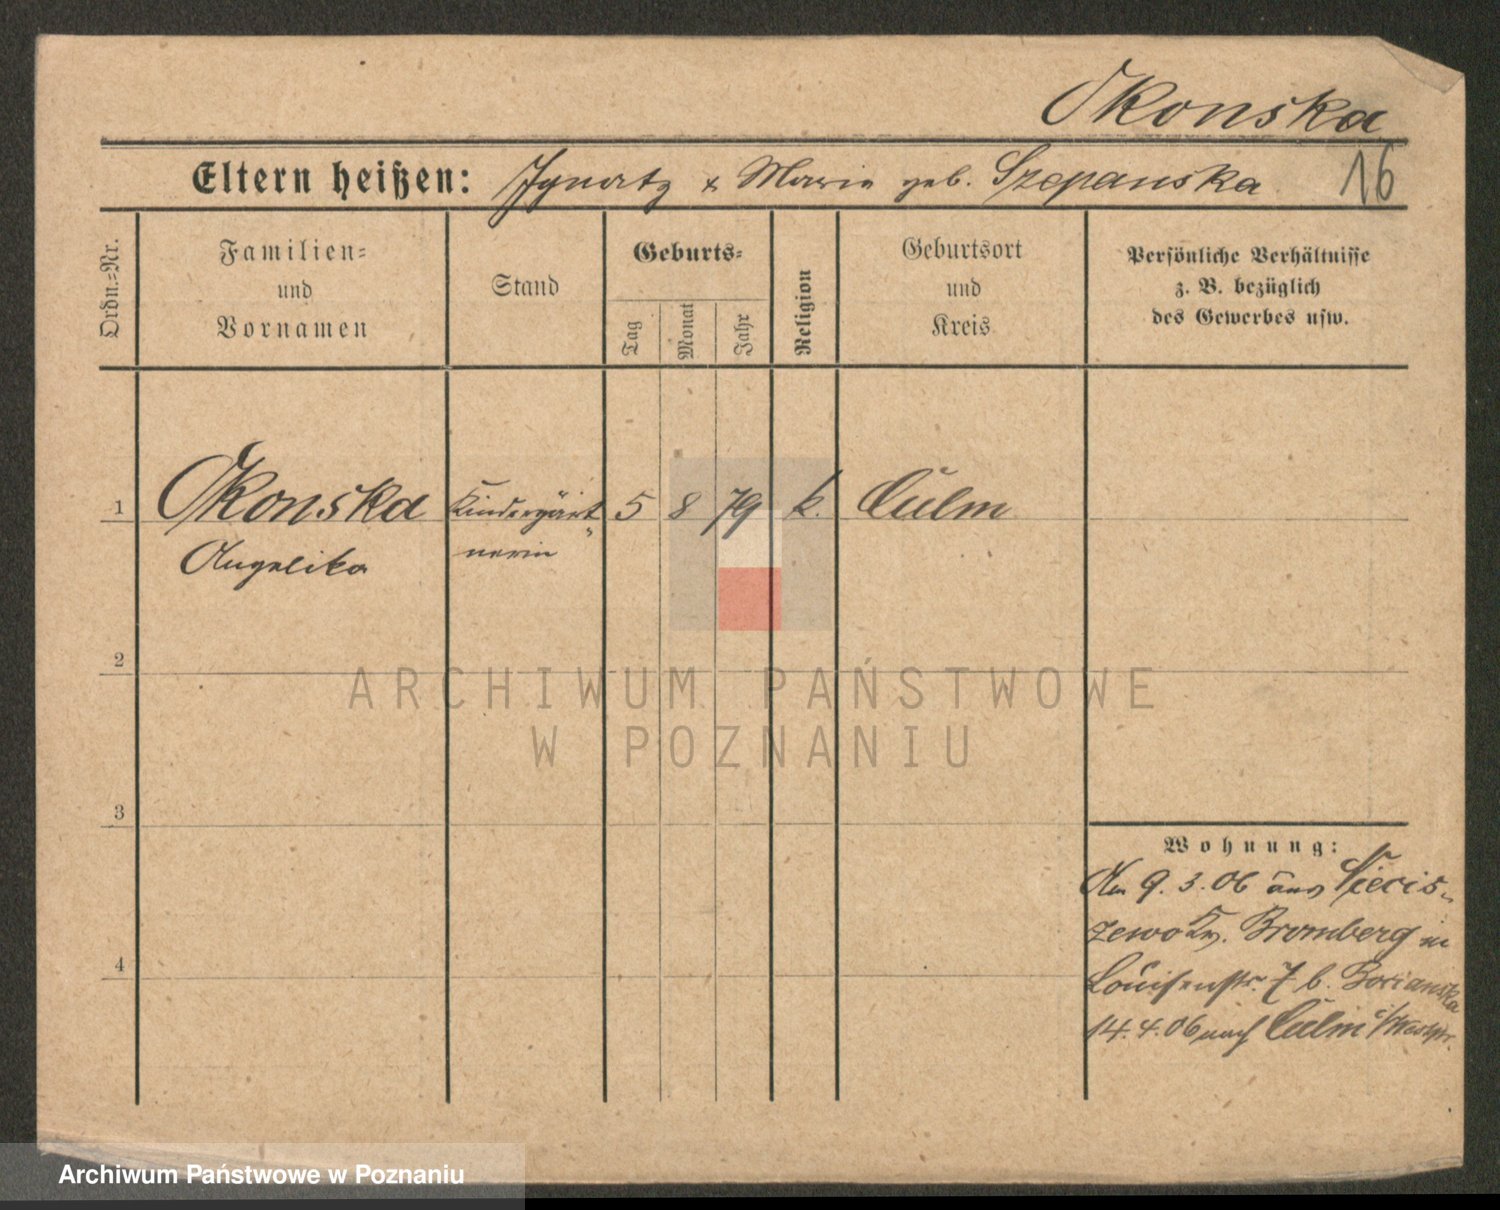 Okonska
Eltern heißen: Ignatz & Marie geb. Szepanska 16
Ordn.=Nr.
Familien=
und
Vornamen
Stand
Geburts=
Tag
Monat
Jahr
Religion
Geburtsort
und
Kreis
Persönliche Verhältnisse
z. B. bezüglich
des Gewerbes usw.
1 Okonska Kindergärt= 5 8 79 k. Culm
Angelika nerin
2
3
4
Wohnung:
Am 9.3.06 aus Siecis=
zewo Kr. Bromberg in
Louisenstr. 7 b. Borianska
14.4.06 nach Culm i/Westpr.
ARCHIWUM PAŃSTWOWE
W POZNANIU
Archiwum Państwowe w Poznaniu